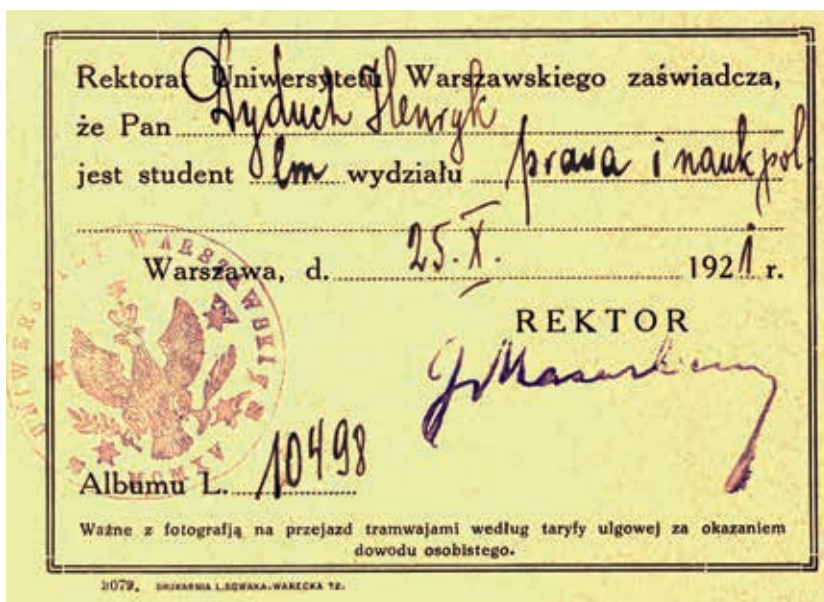 Rektorat Uniwersytetu Warszawskiego zaświadcza,
że Pan Dyduch Henryk
jest student em wydziału prawa i nauk pol.
Warszawa, d. 25. X. 1921 r.
REKTOR
J Mazurkiewicz
UNIWERSYTET WARSZAWSKI
Albumu L. 10498
Ważne z fotografją na przejazd tramwajami według taryfy ulgowej za okazaniem
dowodu osobistego.
2079. DRUKARNIA L. NOWAKA-WARECKA 12.